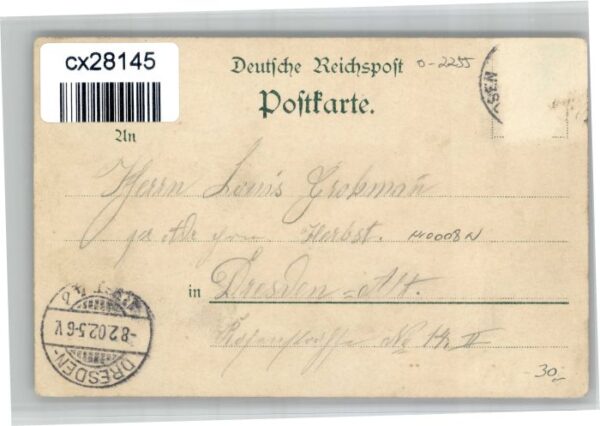 cx28145
Deutsche Reichspost
0-2255
SEN
Postkarte.
An
Herrn Louis Großmann
Herbst. 140008N
in Dresden=Alt.
No II
DRESDEN-
-8.2.02.5-6V.
30,-